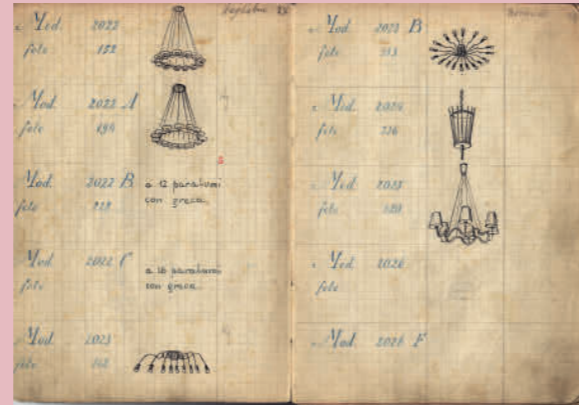 Mod. 2022
foto 152
Mod. 2022 A
foto 194
Mod. 2022 B a 12 paralumi
foto con greca
Mod. 2022 C a 16 paralumi
foto con greca
Mod. 2023
foto
S
Mod. 2023 B
foto
Mod. 2024
foto
Mod. 2025
foto
Mod. 2026
foto
Mod. 2026 F